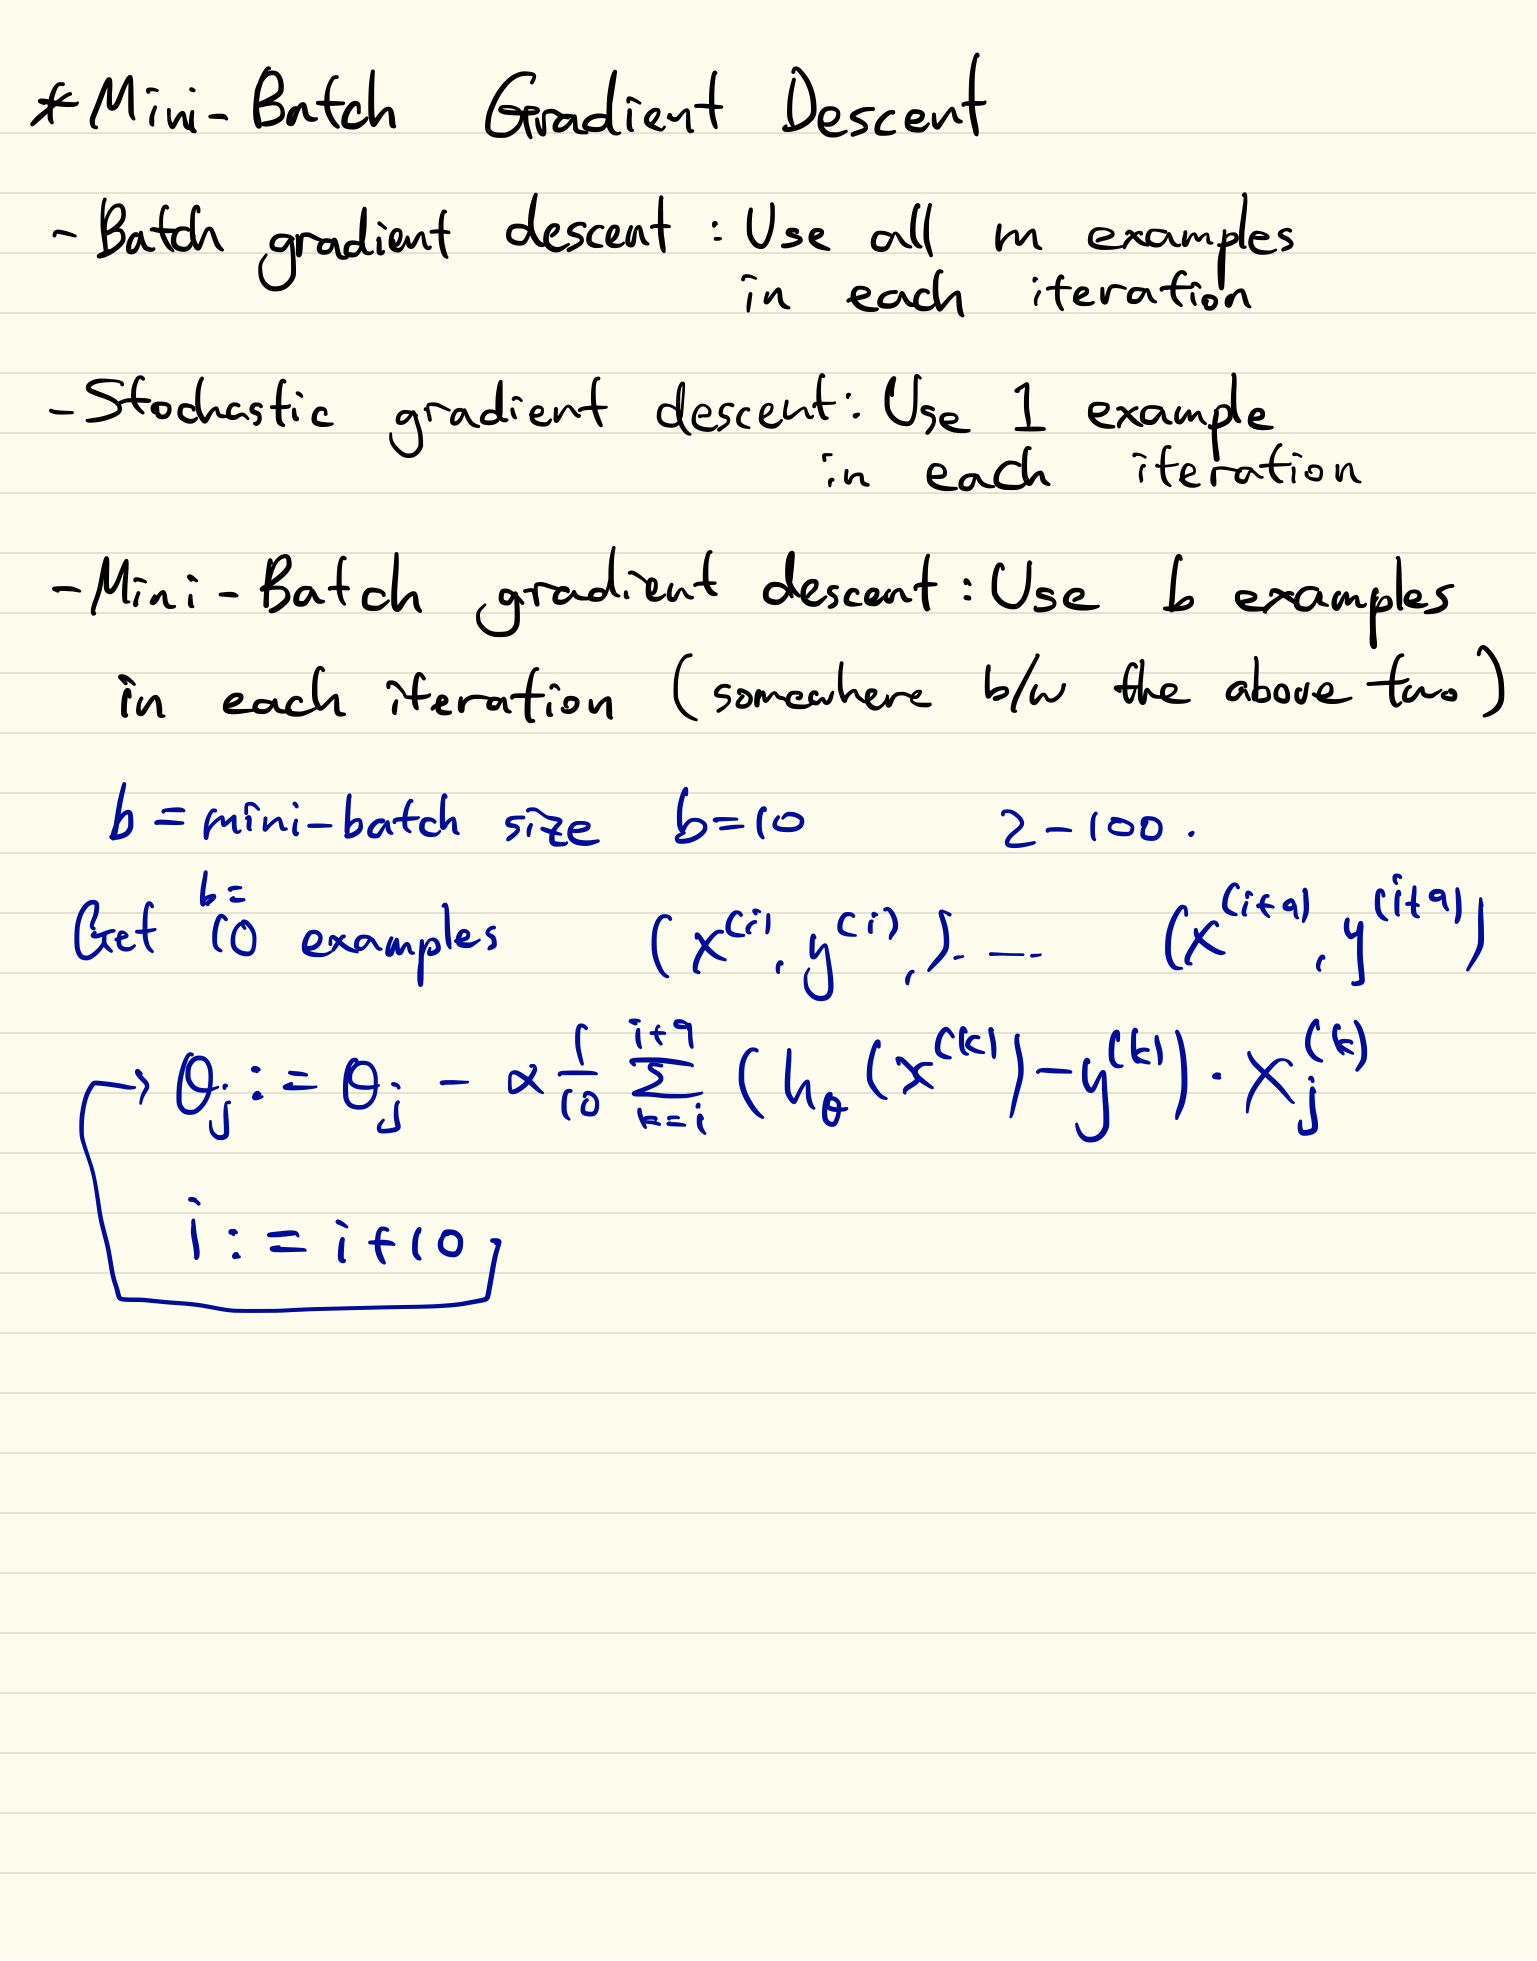 *Mini-Batch Gradient Descent
- Batch gradient descent : Use all m examples
in each iteration
- Stochastic gradient descent : Use 1 example
in each iteration
- Mini-Batch gradient descent : Use b examples
in each iteration (somewhere b/w the above two)
b = mini-batch size b=10 2-100.
b=
Get 10 examples (x^(i), y^(i),) ... (x^(i+9), y^(i+9))
→ θ_j := θ_j - α 1/10 Σ_{k=i}^{i+9} (h_θ(x^(k))-y^(k)) · x_j^(k)
i := i+10